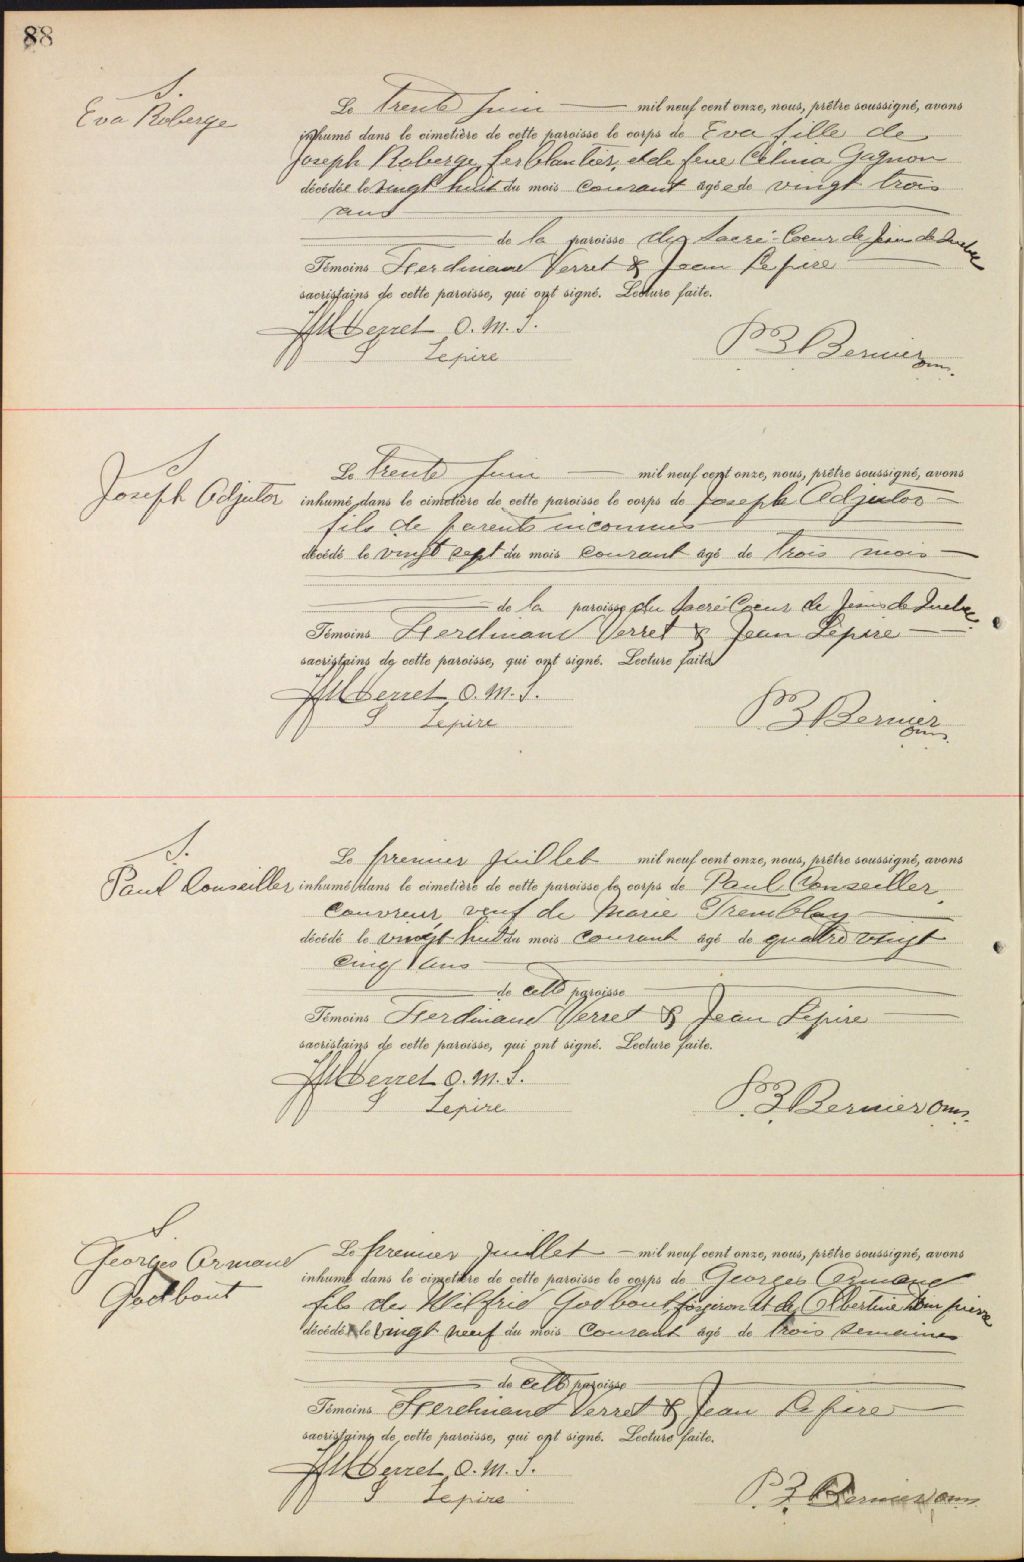 88
S.
Eva Roberge
Le trente Juin mil neuf cent onze, nous, prêtre soussigné, avons
inhumé dans le cimetière de cette paroisse le corps de Eva fille de
Joseph Roberge, ferblantier, et de feue Célina Gagnon
décédée le vingt huit du mois courant âgée de vingt trois
ans
de la paroisse du Sacré-Coeur de Jésus de Québec
Témoins Ferdinand Verret & Jean Lepire
sacristains de cette paroisse, qui ont signé. Lecture faite.
Verret O. M. S.
Lepire
Bernier
S
Joseph Adjutor
Le trente Juin mil neuf cent onze, nous, prêtre soussigné, avons
inhumé dans le cimetière de cette paroisse le corps de Joseph Adjutor
fils de parents inconnus
décédé le vingt sept du mois courant âgé de trois mois
de la paroisse du Sacré Coeur de Jésus de Québec
Témoins Ferdinand Verret & Jean Lepire
sacristains de cette paroisse, qui ont signé. Lecture faite
Verret O. M. S.
Lepire
Bernier
S.
Paul Conseiller
Le premier Juillet mil neuf cent onze, nous, prêtre soussigné, avons
inhumé dans le cimetière de cette paroisse le corps de Paul Conseiller,
couvreur, veuf de Marie Tremblay
décédé le vingt huit du mois courant âgé de quatre vingt
cinq ans
de cette paroisse
Témoins Ferdinand Verret & Jean Lepire
sacristains de cette paroisse, qui ont signé. Lecture faite.
Verret O. M. S.
Lepire
Bernier
S
Georges Armand
Godbout
Le premier Juillet mil neuf cent onze, nous, prêtre soussigné, avons
inhumé dans le cimetière de cette paroisse le corps de Georges Armand
fils de Wilfrid Godbout, forgeron et de Albertine
décédé le vingt neuf du mois courant âgé de trois semaines
de cette paroisse
Témoins Ferdinand Verret & Jean Lepire
sacristains de cette paroisse, qui ont signé. Lecture faite.
Verret O. M. S.
Lepire
Bernier